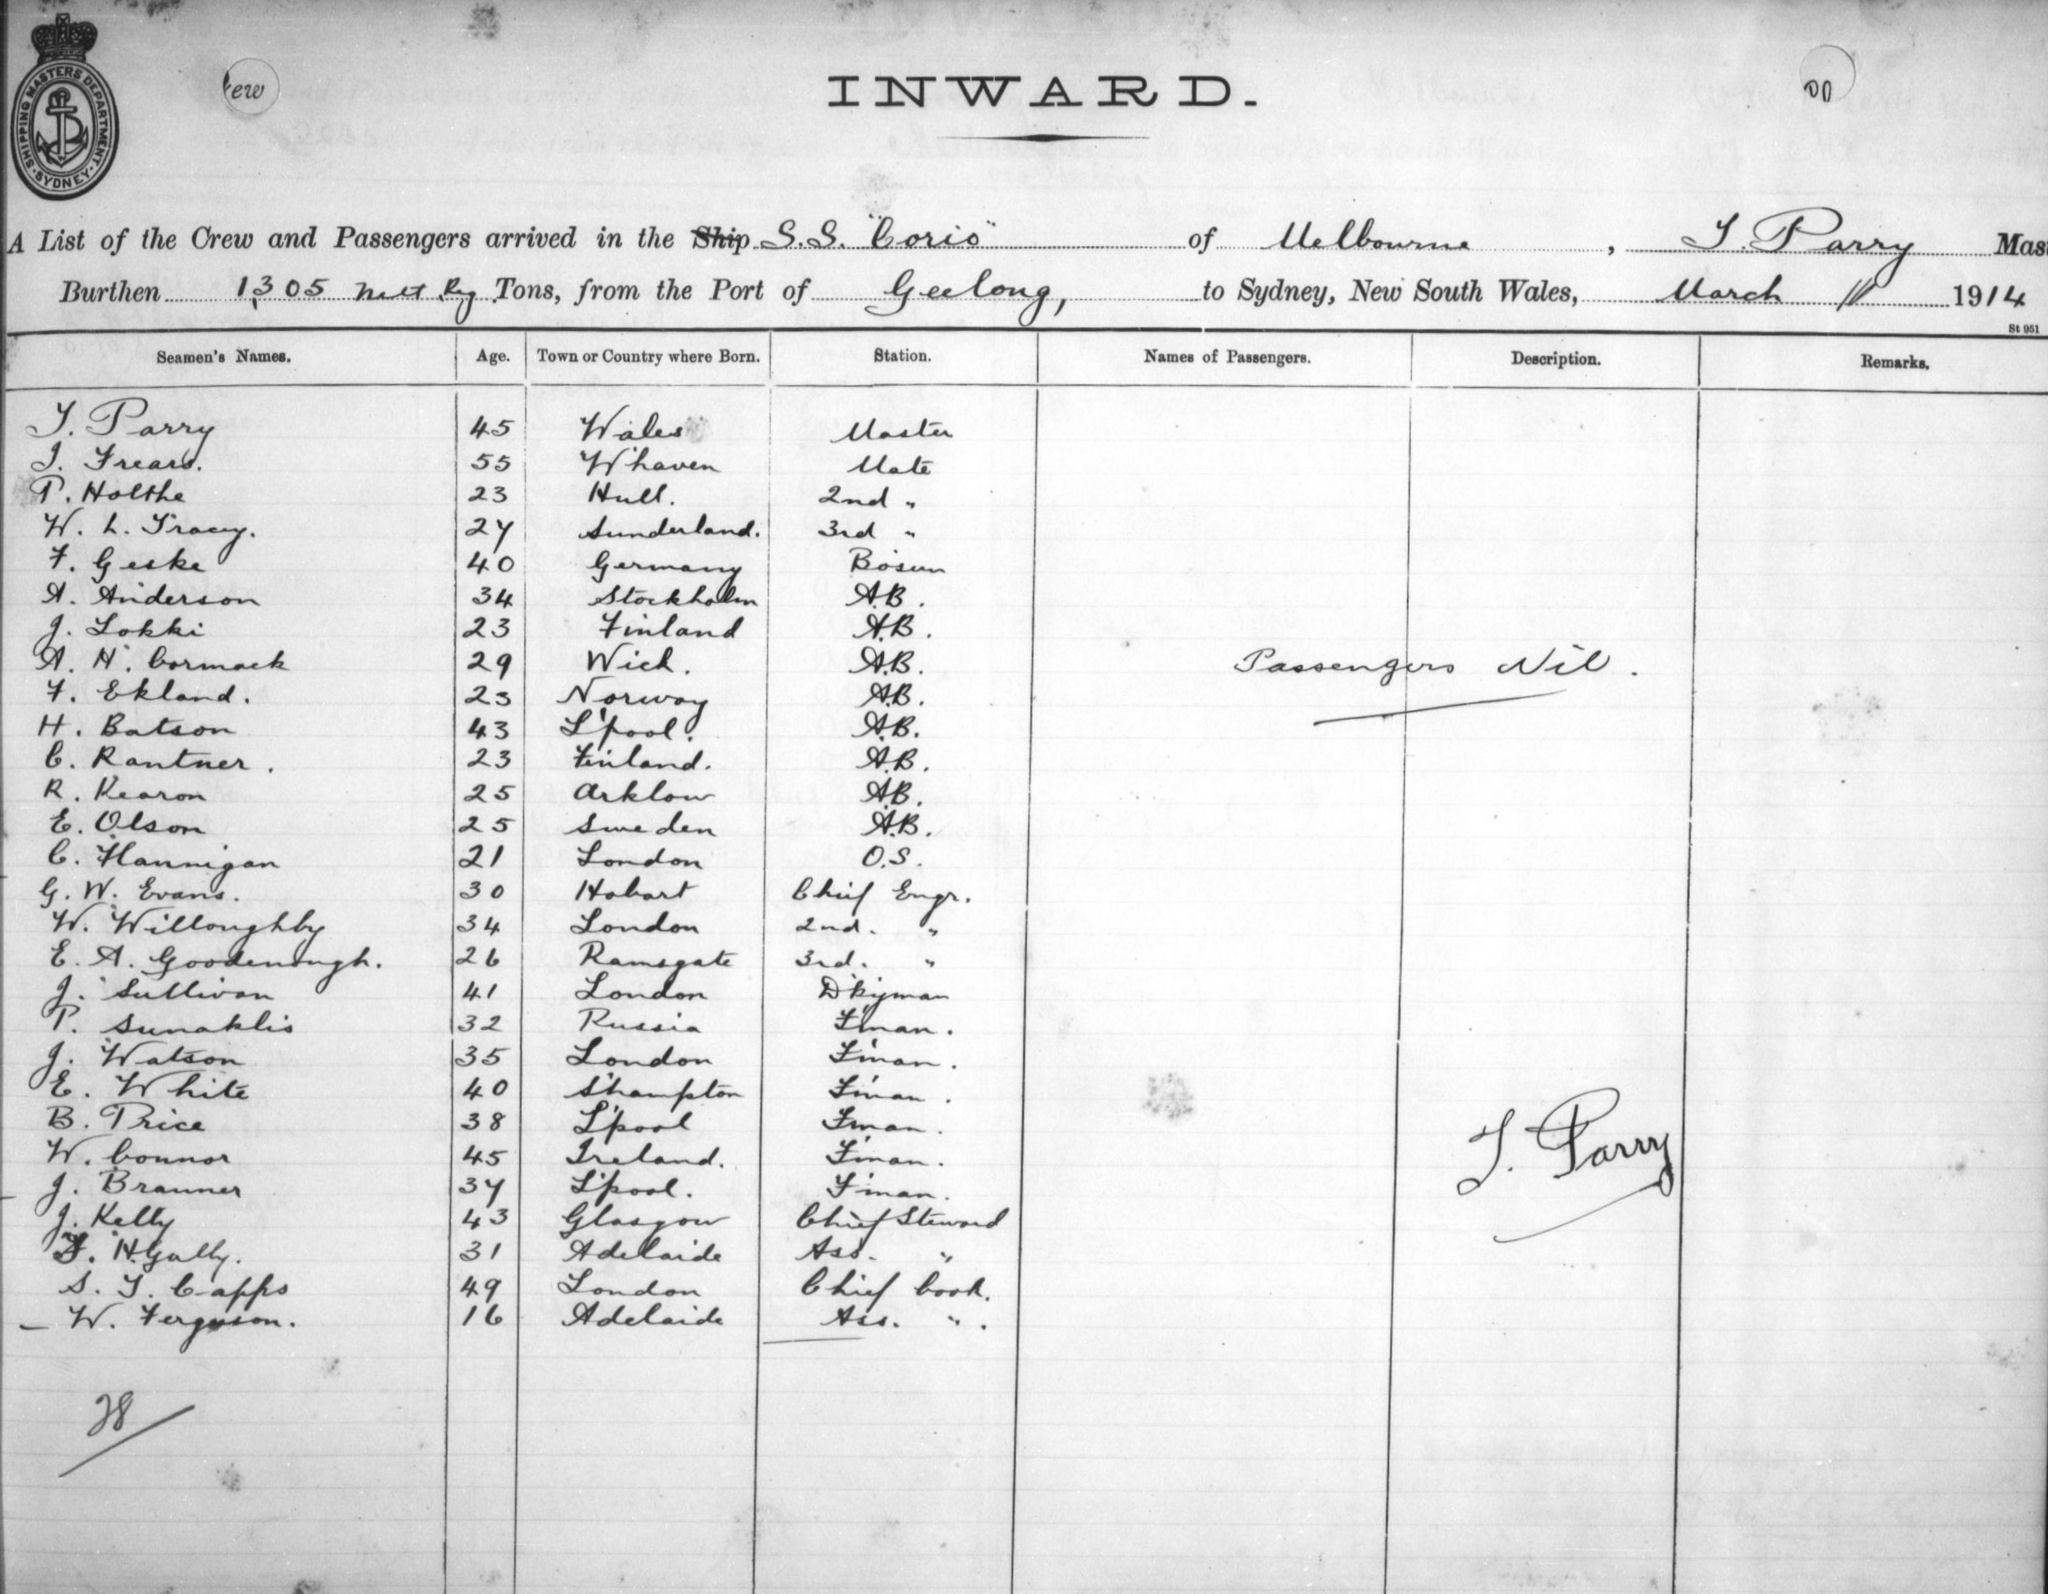 SHIPPING MASTERS DEPARTMENT
SYDNEY
ew
INWARD.
A List of the Crew and Passengers arrived in the Ship S.S. "Corio" of Melbourne, T. Parry Mas
Burthen 1305 Nett Reg Tons, from the Port of Geelong, to Sydney, New South Wales, March 11 1914
St 951
Seamen's Names. Age. Town or Country where Born. Station. Names of Passengers. Description. Remarks.
T. Parry 45 Wales Master
J. Frears. 55 W'haven Mate
P. Holthe 23 Hull. 2nd "
W. L. Tracey. 27 Sunderland. 3rd "
F. Geske 40 Germany Bosun
A. Anderson 34 Stockholm A.B.
J. Lokki 23 Finland A.B.
A. H. Cormack 29 Wick. A.B. Passengers Nil.
F. Ekland. 23 Norway A.B.
H. Batson 43 L'pool. A.B.
C. Rantner. 23 Finland. A.B.
R. Kearon 25 Arklow A.B.
E. Olson 25 Sweden A.B.
C. Flannigan 21 London O.S.
G. W. Evans. 30 Hobart Chief Engr.
W. Willoughby 34 London 2nd. "
E. A. Goodenough. 26 Ramsgate 3rd. "
J. Sullivan 41 London D'kyman
P. Sunaklis 32 Russia F'man.
J. Watson 35 London F'man.
E. White 40 S'hampton F'man.
B. Price 38 L'pool F'man.
W. Connor 45 Ireland. F'man. T. Parry
J. Brauner 37 L'pool. F'man.
J. Kelly 43 Glasgow Chief Steward
H. Gally. 31 Adelaide Ass. "
S. T. Capps 49 London Chief Cook.
W. Ferguson. 16 Adelaide Ass. ".
28